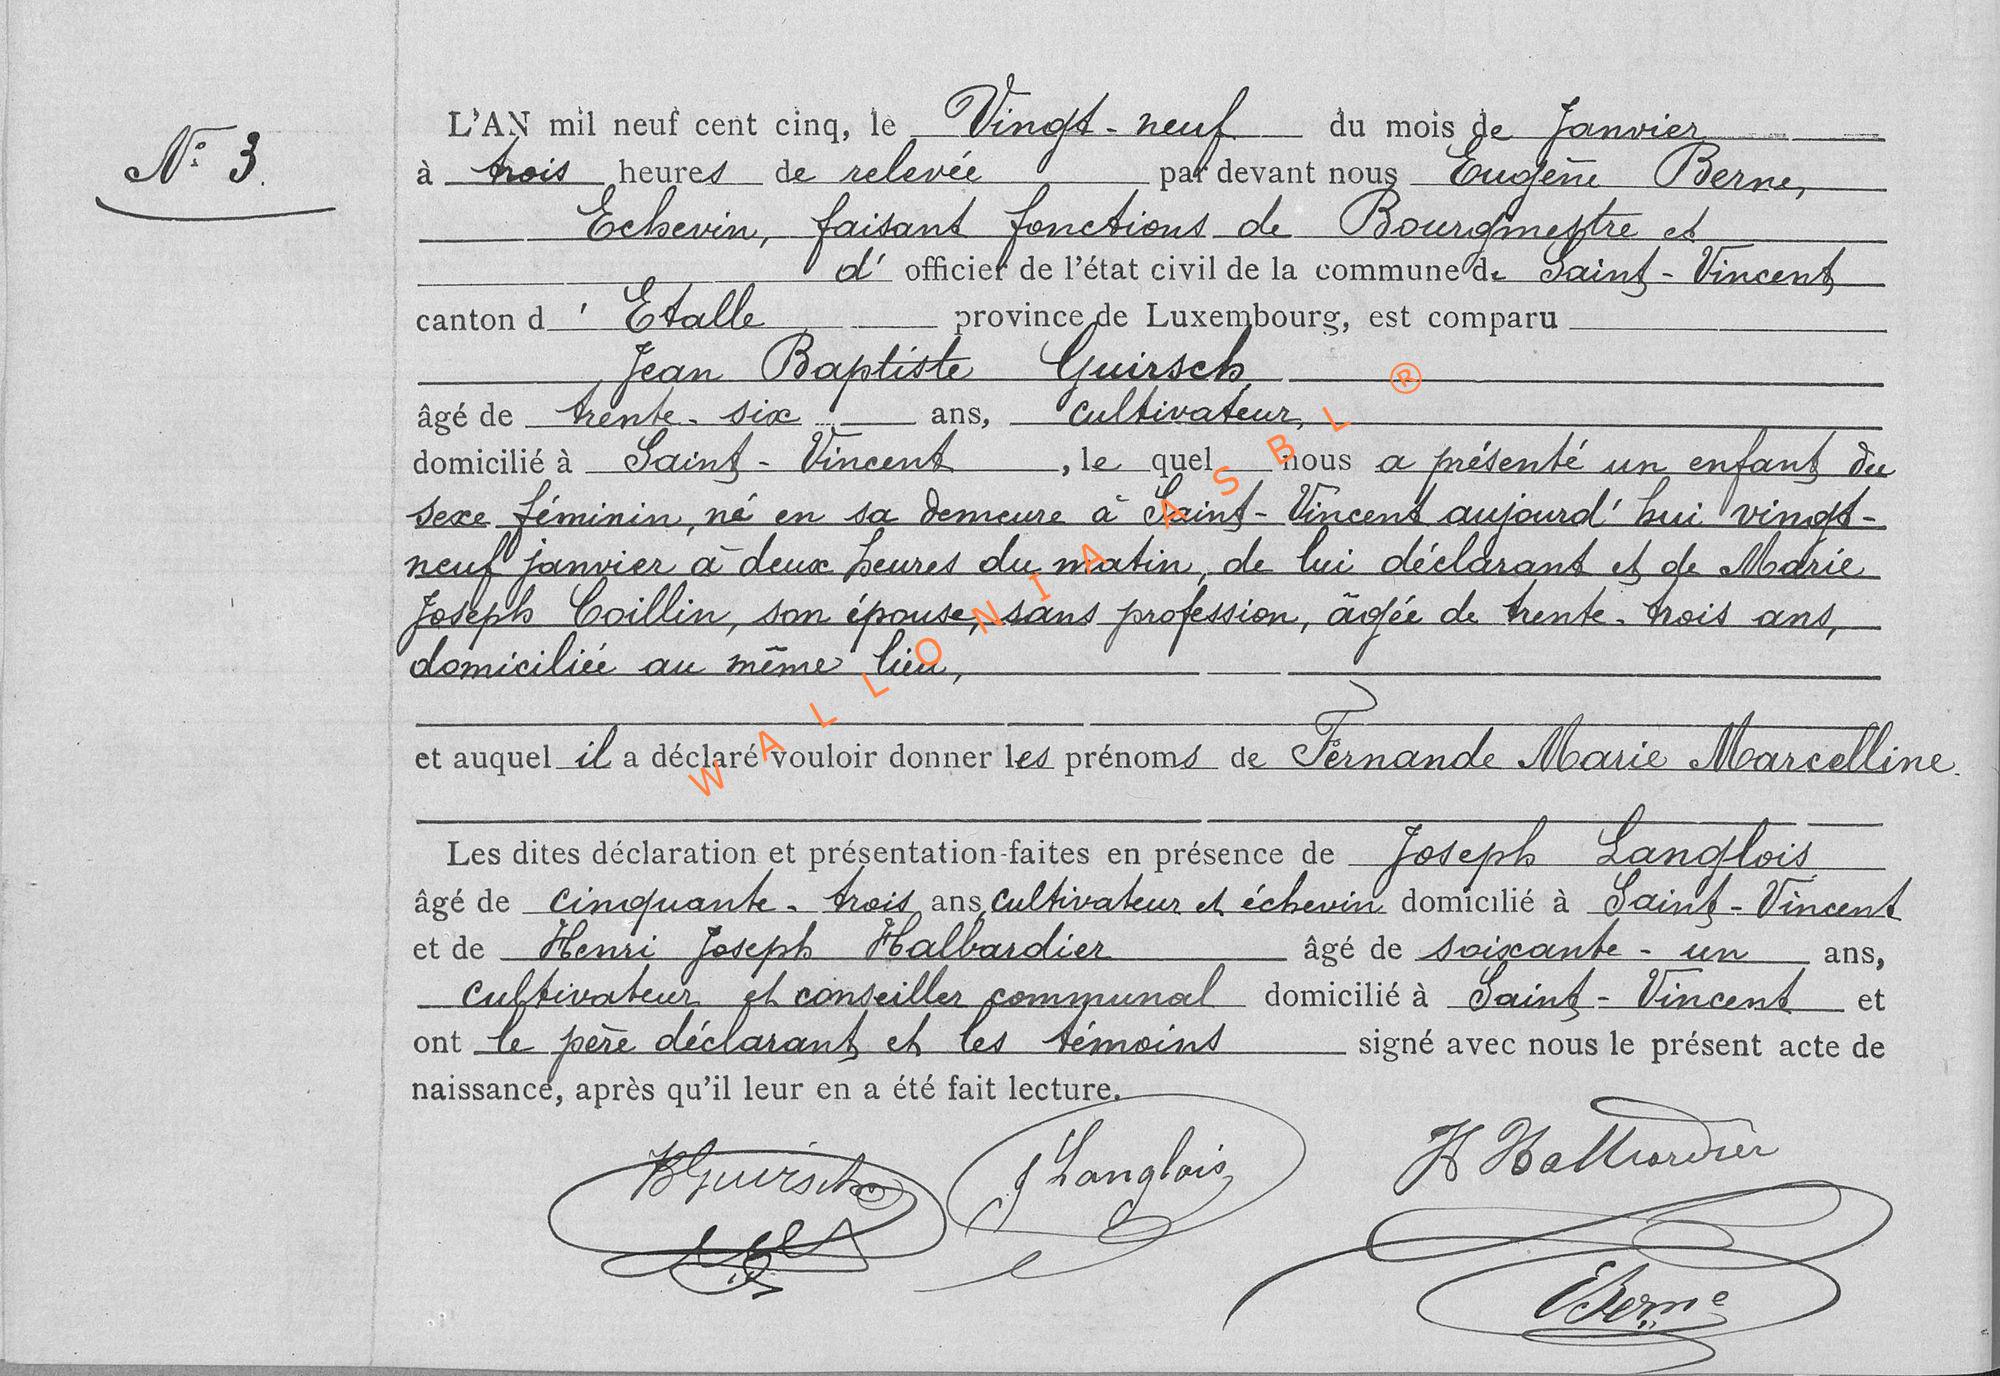 N° 3.
L'AN mil neuf cent cinq, le Vingt-neuf du mois de Janvier
à trois heures de relevée par devant nous Eugène Berne,
Echevin, faisant fonctions de Bourgmestre et
d' officier de l'état civil de la commune de Saint-Vincent
canton d'Etalle province de Luxembourg, est comparu
Jean Baptiste Guirsch
âgé de trente-six ans, cultivateur,
domicilié à Saint-Vincent, le quel nous a présenté un enfant du
sexe féminin, né en sa demeure à Saint-Vincent aujourd'hui vingt-
neuf janvier à deux heures du matin, de lui déclarant et de Marie
Joseph Collin, son épouse, sans profession, âgée de trente-trois ans,
domiciliée au même lieu,
et auquel il a déclaré vouloir donner les prénoms de Fernande Marie Marcelline.
Les dites déclaration et présentation faites en présence de Joseph Langlois
âgé de cinquante-trois ans, cultivateur et échevin domicilié à Saint-Vincent
et de Henri Joseph Halbardier âgé de soixante-un ans,
cultivateur et conseiller communal domicilié à Saint-Vincent et
ont le père déclarant et les témoins signé avec nous le présent acte de
naissance, après qu'il leur en a été fait lecture.
JBGuirsch J Langlois H Halbardier
EBerne
WALLONIA ASBL ®